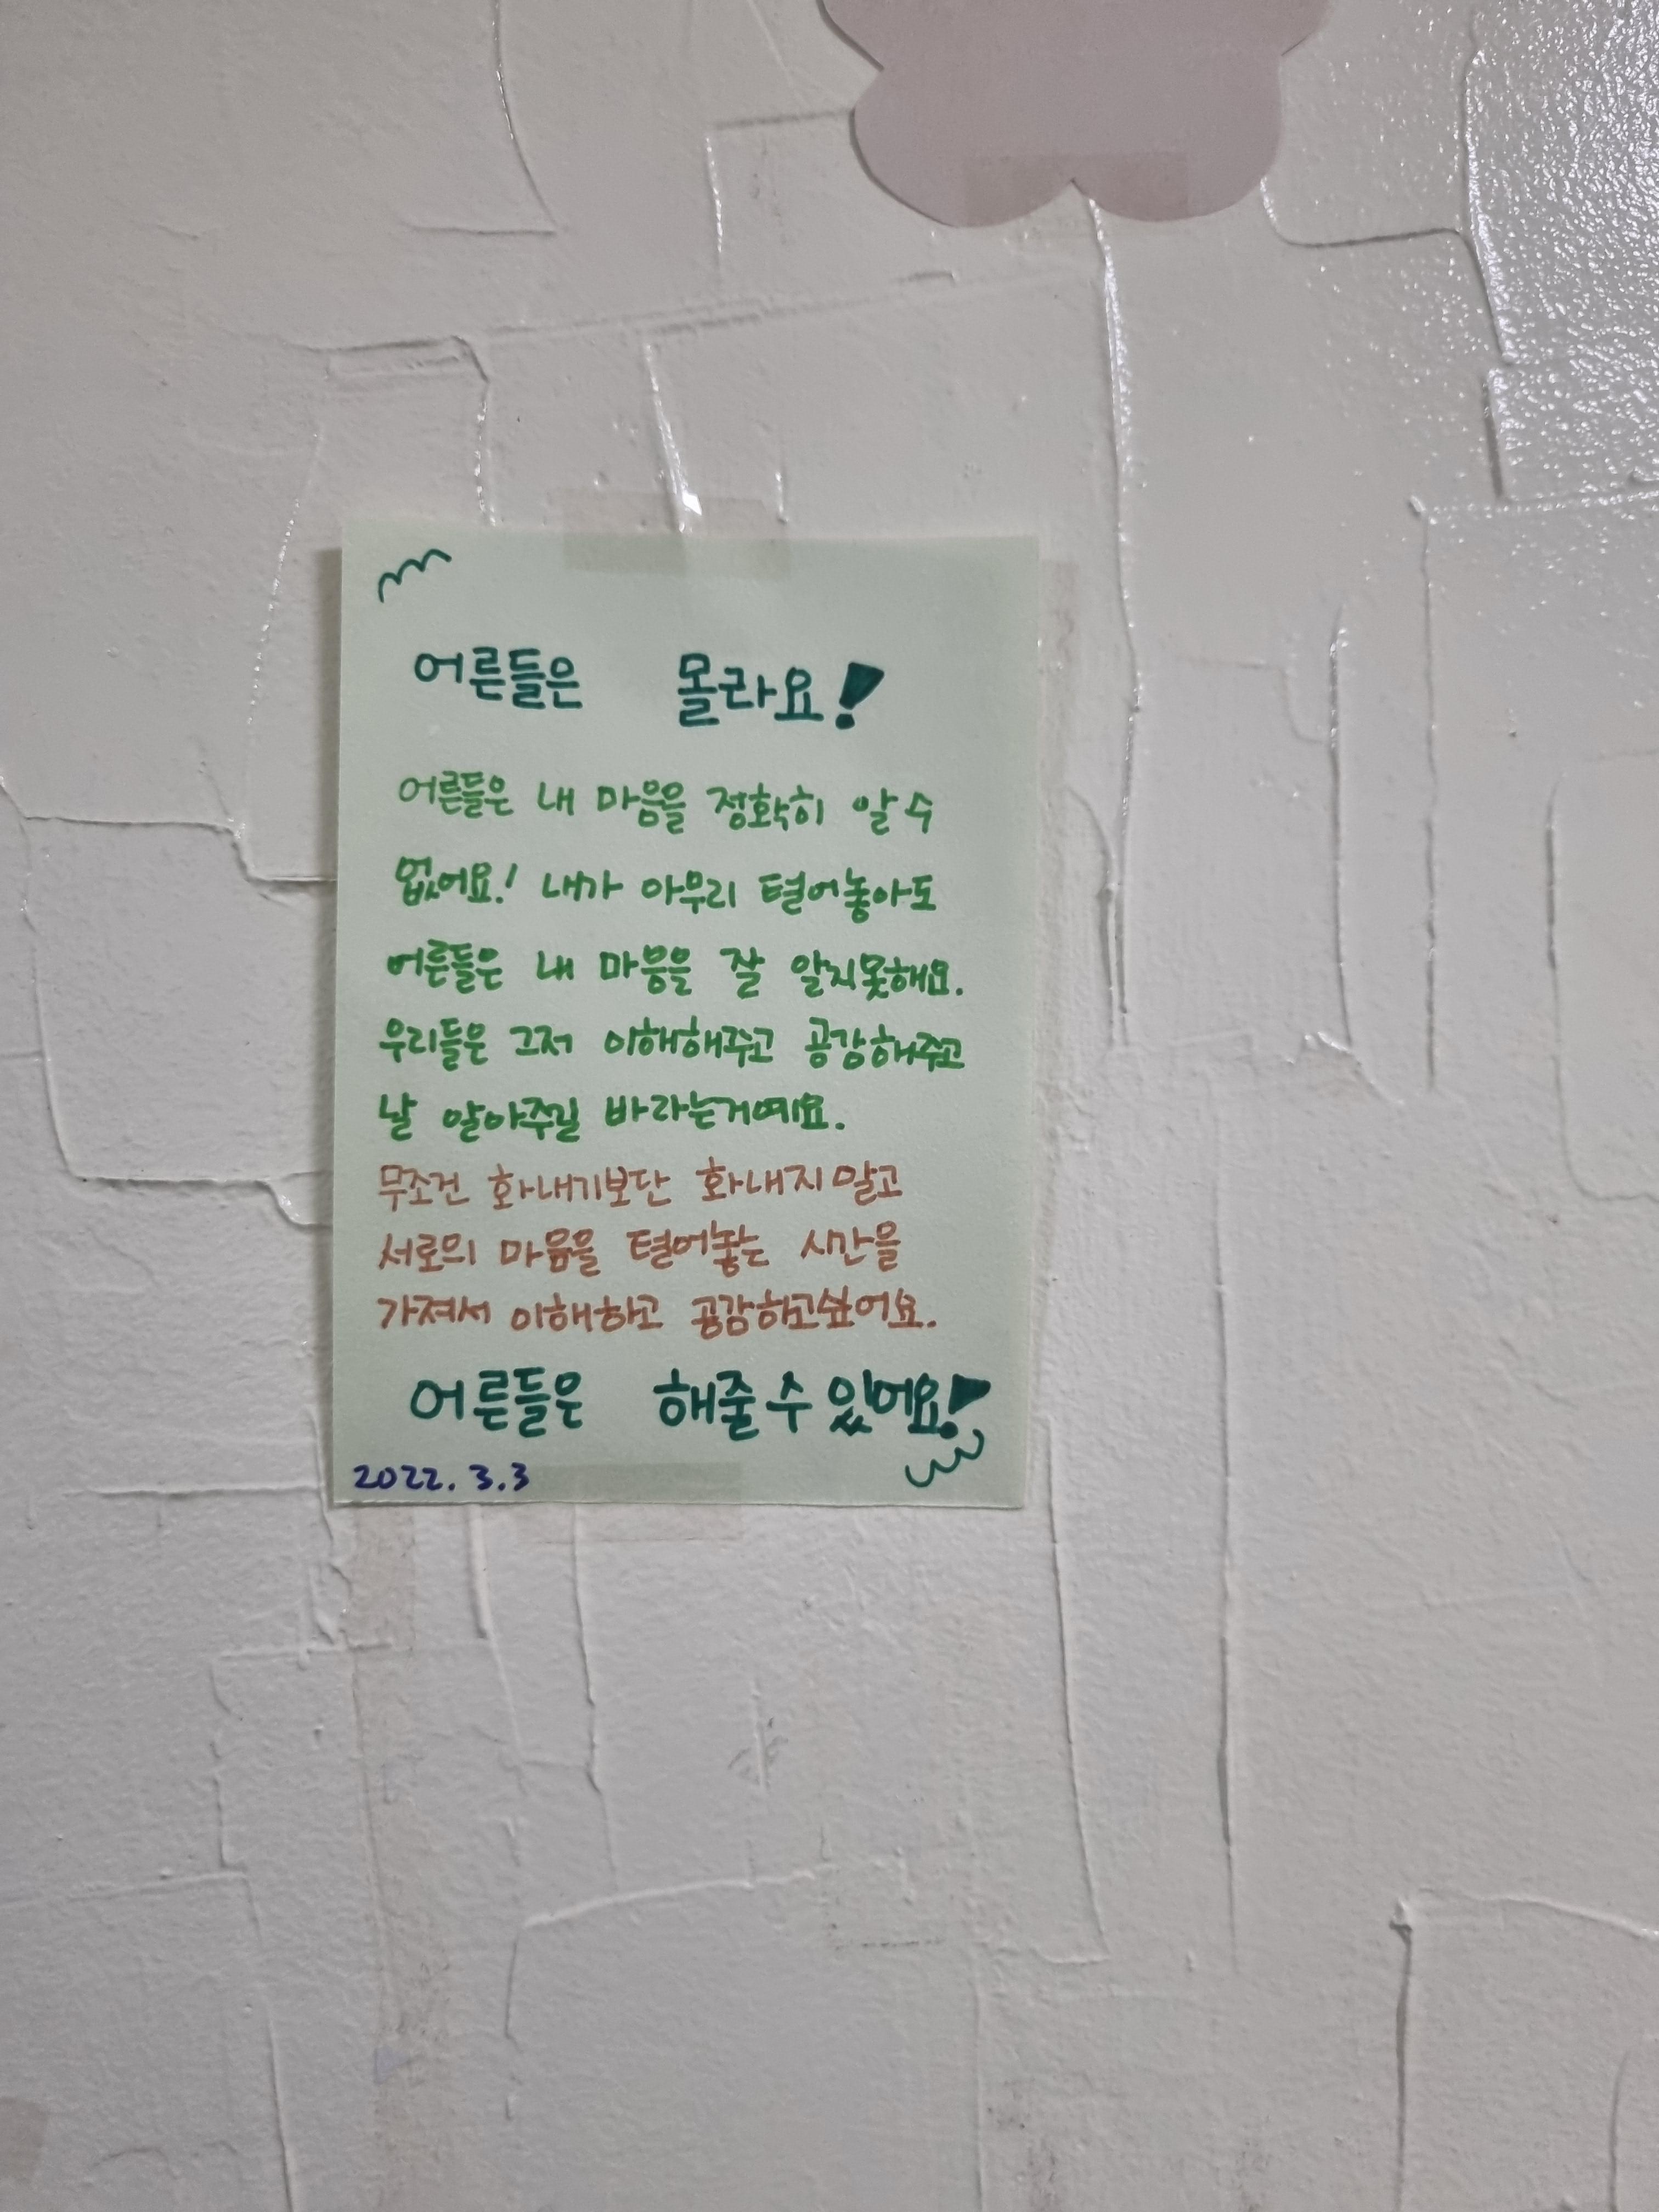 어른들은 몰라요!
어른들은 내 마음을 정확히 알 수
없어요! 내가 아무리 털어놓아도
어른들은 내 마음을 잘 알지못해요.
우리들은 그저 이해해주고 공감해주고
날 알아주길 바라는거예요.
무조건 화내기보단 화내지말고
서로의 마음을 털어놓는 시간을
가져서 이해하고 공감하고싶어요.
어른들은 해줄 수 있어요!
2022. 3.3